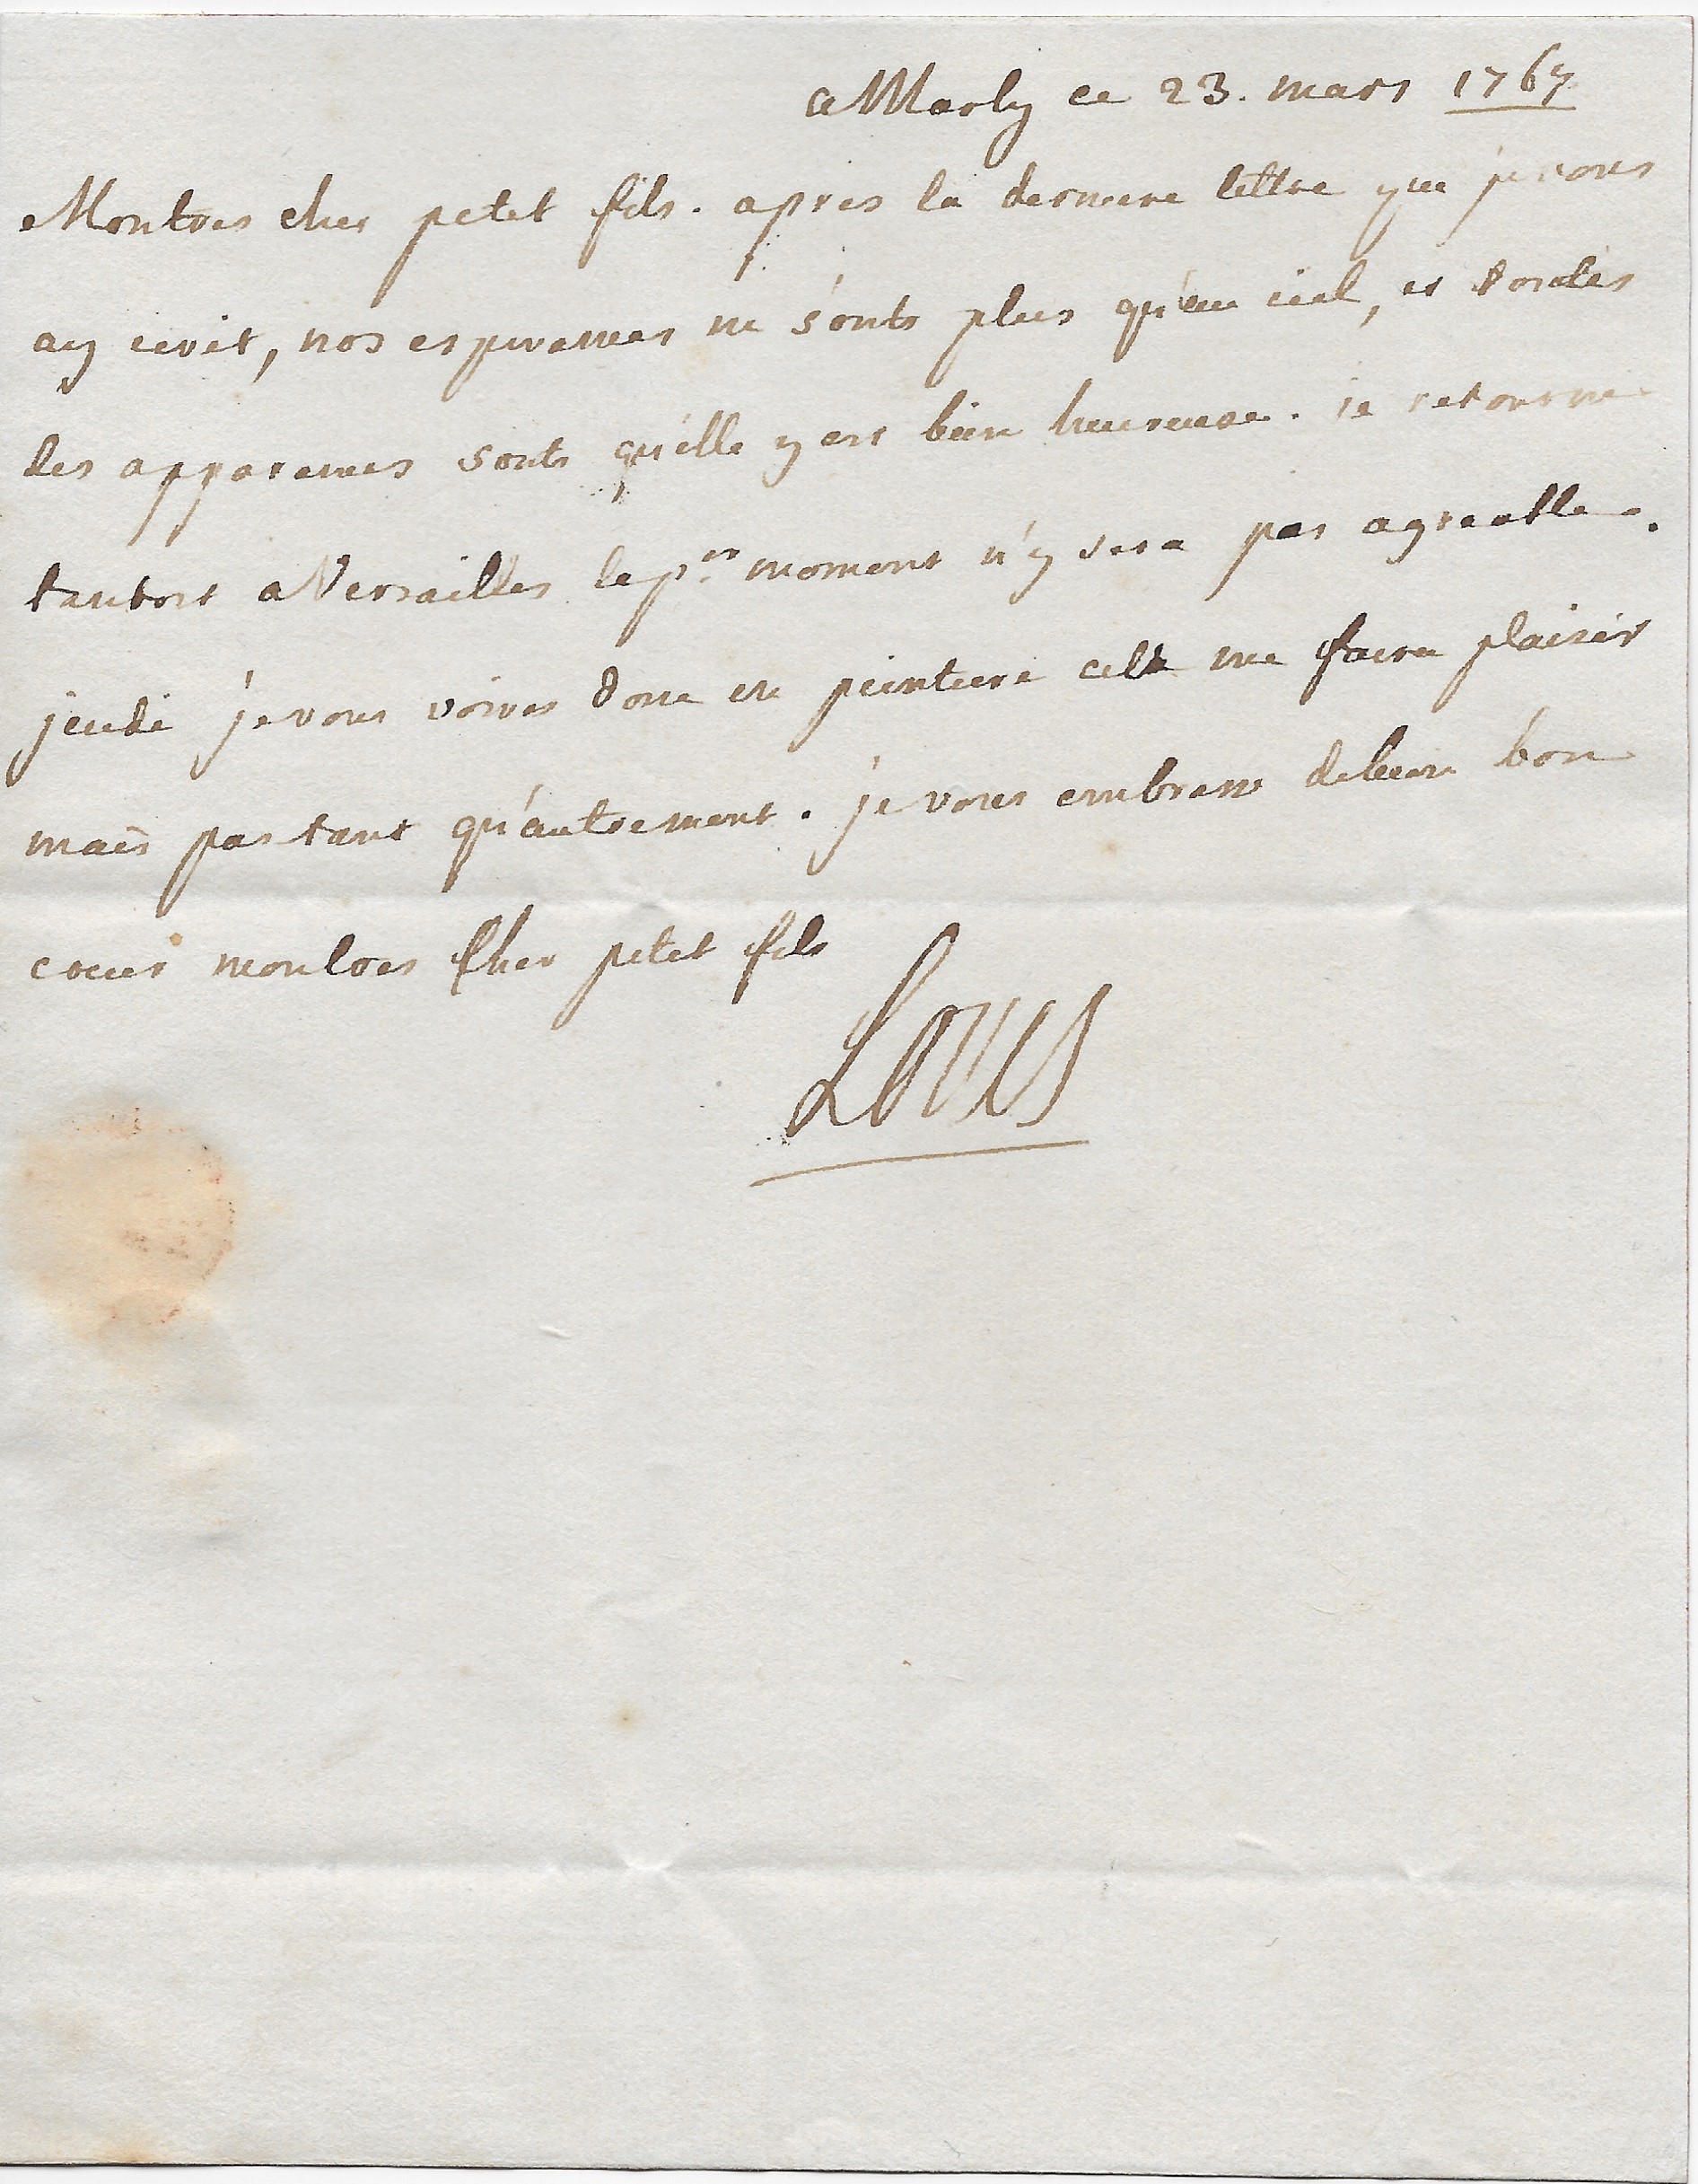 a Marly ce 23. mars 1767.
Mon tres cher petit fils. apres la derniere lettre que je vous
ay ecrit, nos esperances ne s'onts plus qu'au ciel, et toutes
les apparences sonts qu'elle y est bien heureuse. je retourne
tantost a Versailles le p.er moment n'y sera pas agreable.
jeudi je vous voires donc en peinture cela me faira plaisir
mais pas tant qu'autrement. je vous embrasse de bien bon
coeur mon tres cher petit fils
Louis